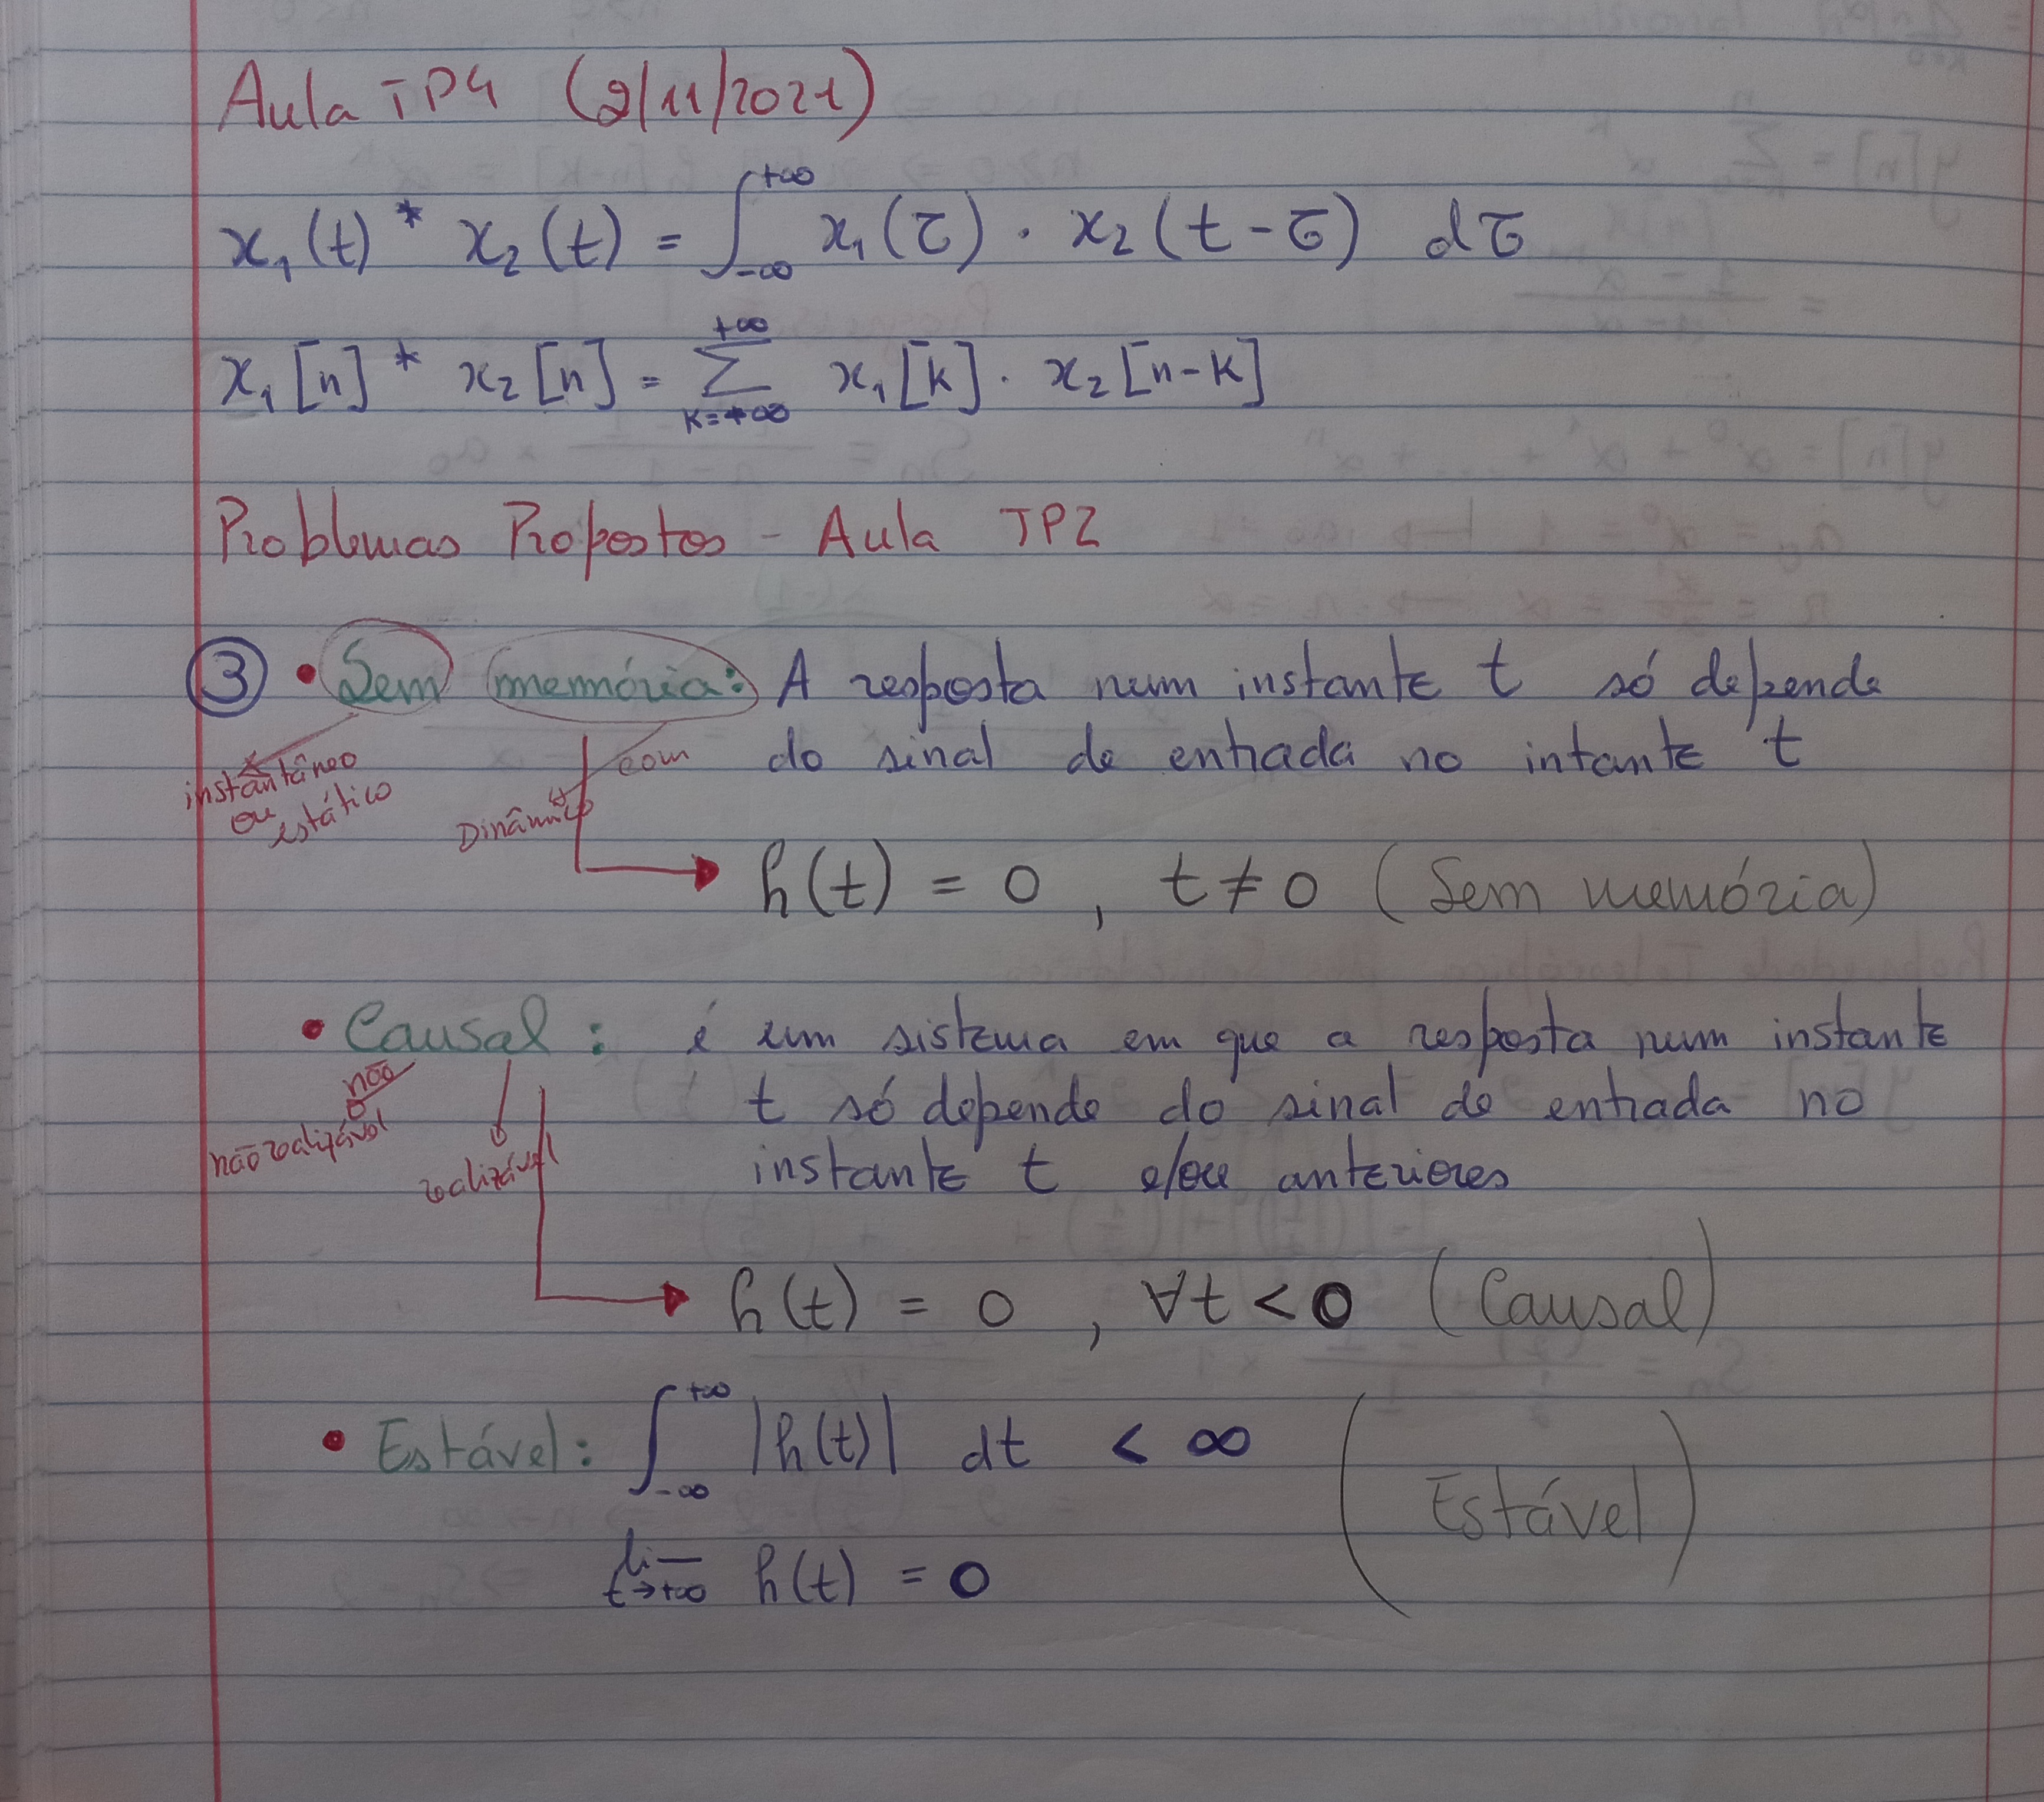 Aula TP4 (2/11/2021)
x₁(t) * x₂(t) = ∫_{-∞}^{+∞} x₁(τ) · x₂(t-τ) dτ
x₁[n] * x₂[n] = Σ_{k=+∞}^{+∞} x₁[k] · x₂[n-k]
Problemas Propostos - Aula TP2
③ • Sem memória: A resposta num instante t só depende
do sinal de entrada no intante t
instantâneo
ou estático
com
Dinâmico
h(t) = 0 , t ≠ 0 (Sem memória)
• Causal: é um sistema em que a resposta num instante
t só depende do sinal de entrada no
instante t e/ou anteriores
não
não realizável
realizável
h(t) = 0 , ∀t < 0 (Causal)
• Estável: ∫_{-∞}^{+∞} |h(t)| dt < ∞
(Estável)
lim_{t→+∞} h(t) = 0